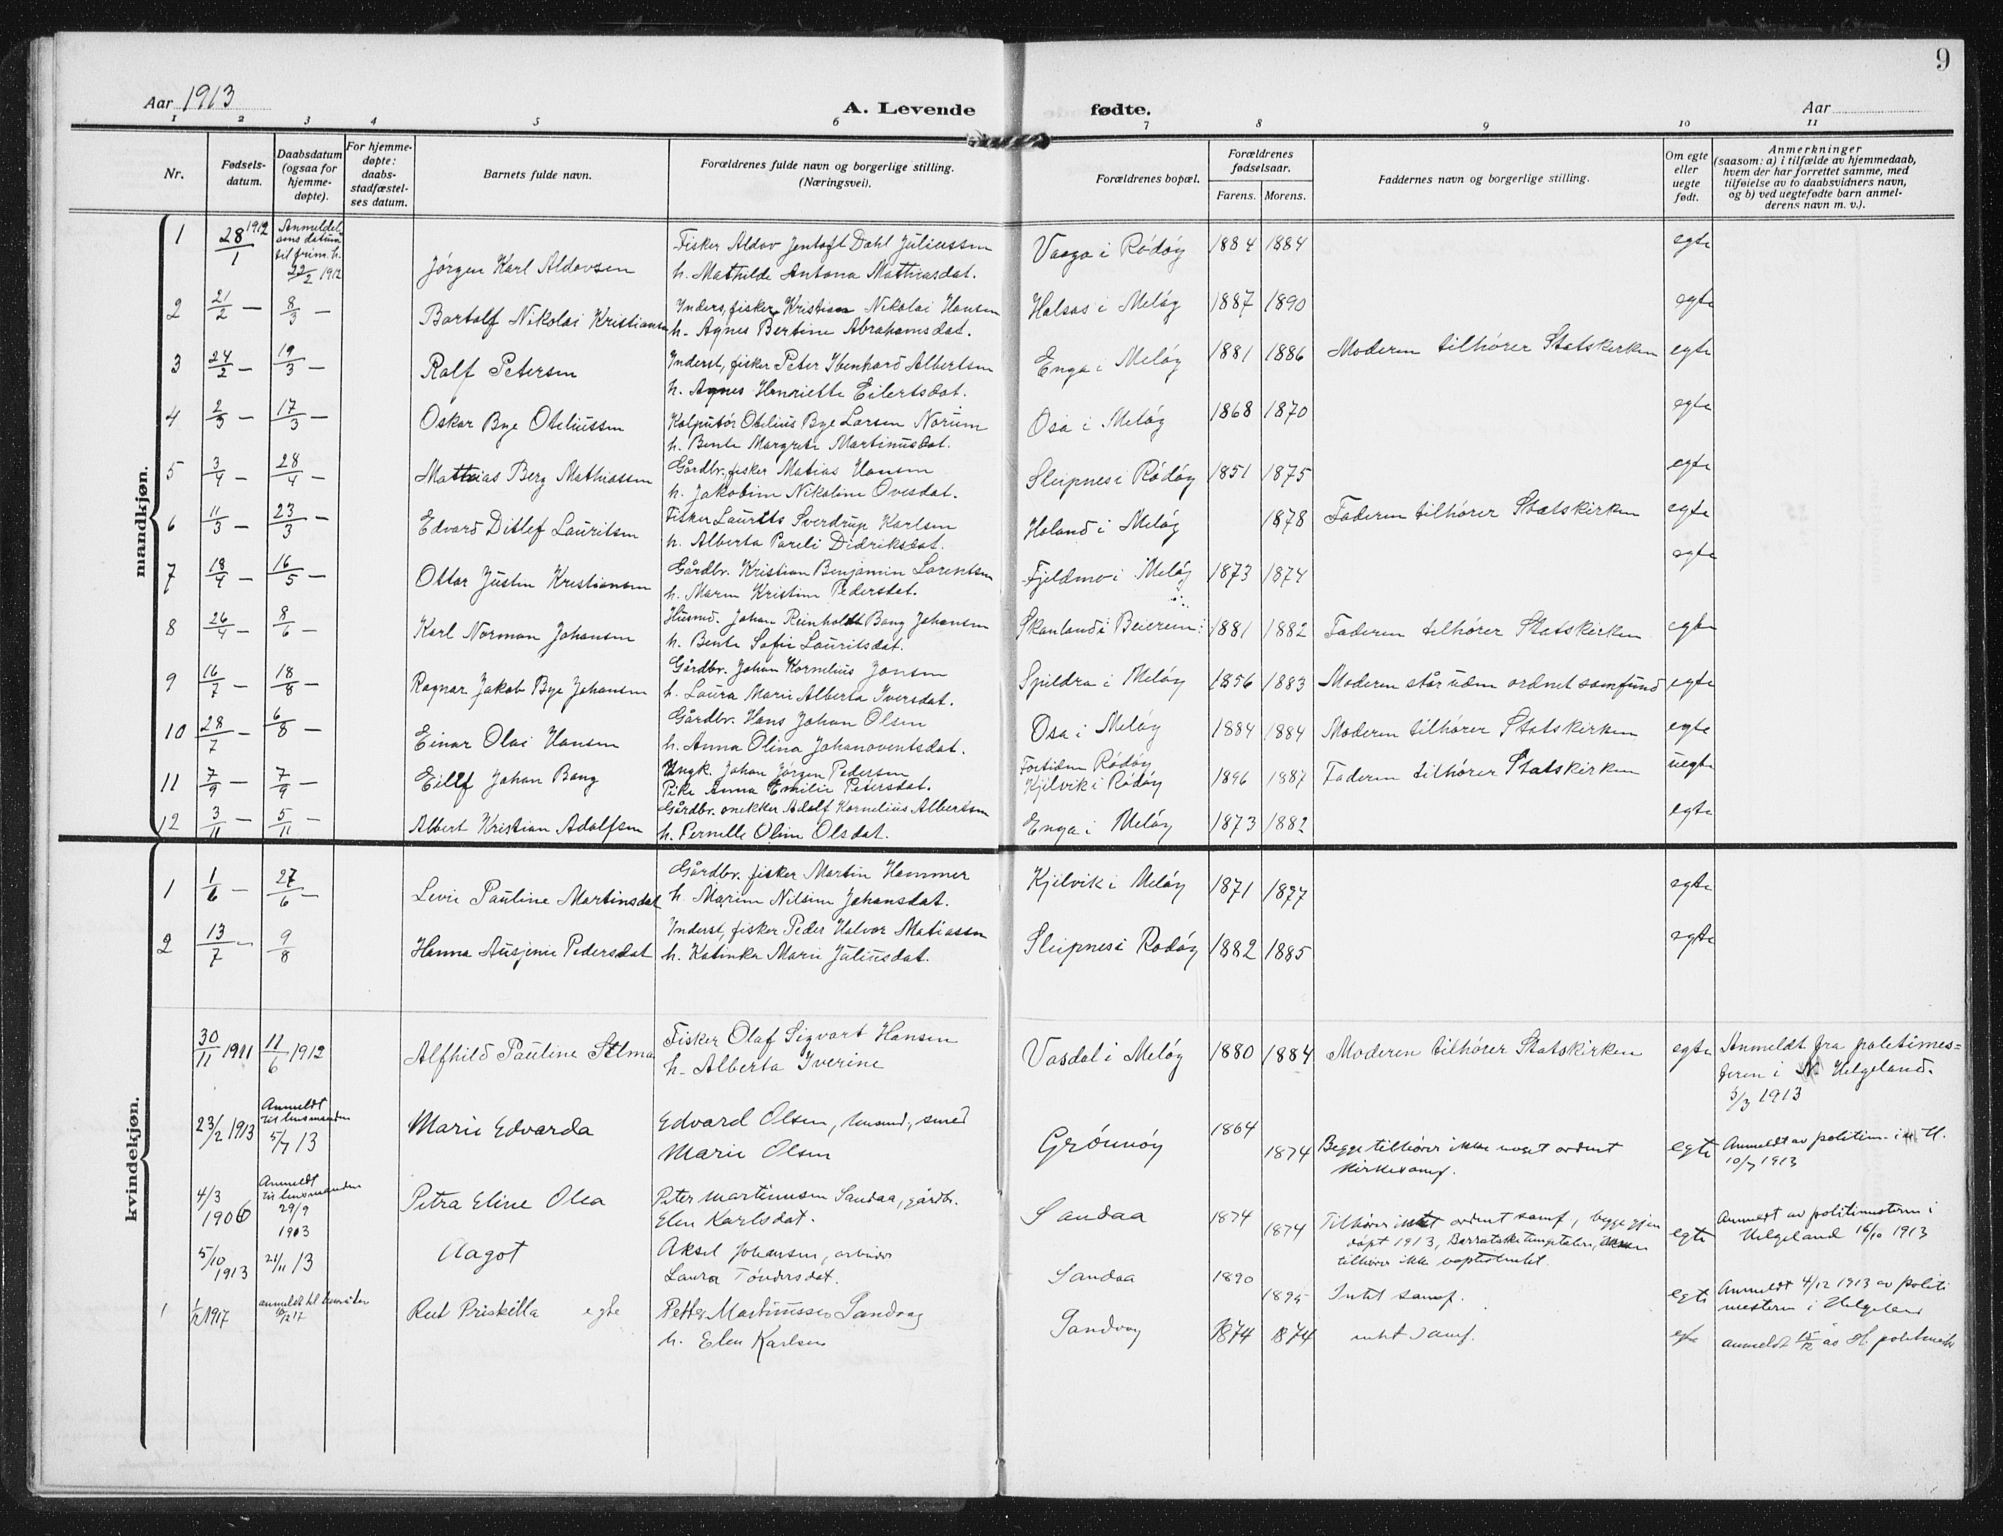 9
Aar 1913
A. Levende fødte.
Aar
1 2 3 4 5 6 7 8 9 10 11
Nr.
Fødsels-
datum.
Daabsdatum
(ogsaa for
hjemme-
døpte).
For hjemme-
døpte:
daabs-
stadfæstel-
ses datum.
Barnets fulde navn.
Forældrenes fulde navn og borgerlige stilling.
(Næringsvei).
Forældrenes bopæl.
Forældrenes
fødselsaar.
Farens. Morens.
Faddernes navn og borgerlige stilling.
Om egte
eller
uegte
født.
Anmerkninger
(saasom: a) i tilfælde av hjemmedaab,
hvem der har forrettet samme, med
tilføielse av to daabsvidners navn,
og b) ved uegtefødte barn anmel-
derens navn m. v.).
mandkjøn.
1 28/1 1912 Anmeldel
sens datum
til frim. h.
22/2 1912 Jørgen Karl Aldovsen
Fisker Aldov Jentoft Dahl Juliussen
h. Mathilde Antona Mathiasdat.
Vaaga i Rödöy 1884 1884 egte
2 21/2 — 8/3 — Bartolf Nikolai Kristiansen
Inders, fisker Kristian Nikolai Hansen
h. Agnes Bertine Abrahamsdat.
Halsas i Melöy 1887 1890 egte
3 24/2 — 19/3 — Ralf Petersen
Inderst, fisker Peter Ibenhard Albertsen
h. Agnes Henriette Eilertsdat.
Enga i Melöy 1881 1886 Moderen tilhører Statskirken egte
4 2/3 — 17/3 — Oskar Bye Oteliussen
Kolputör Otelius Bye Larsen Norum
h. Bente Margrete Martinusdat.
Osa i Melöy 1868 1870 egte
5 3/4 — 28/4 — Mathias Berg Mathiassen
Gårdbr. fisker Matias Hansen
h. Jakobine Nikoline Ovesdat.
Sleipnes i Rödöy 1851 1875 egte
6 11/3 — 23/3 — Edvard Ditlef Lauritsen
Fisker Laurits Sverdrup Karlsen
h. Alberta Pareli Didriksdat.
Haland i Melöy 1878 Faderen tilhører Statskirken egte
7 18/4 — 16/5 — Ottar Justin Kristiansen
Gårdbr. Kristian Benjamin Lorentsen
h. Maren Kristine Pedersdat.
Fjeldmo i Melöy 1873 1874 egte
8 26/4 — 8/6 — Karl Norman Johansen
Husmd. Johan Reinholdt Bang Johansen
h. Bente Sofie Lauritsdat.
Skanland i Beieren 1881 1882 Faderen tilhører Statskirken egte
9 16/7 — 18/8 — Ragnar Jakob Bye Johansen
Gårdbr. Johan Kornelius Jonsen
h. Laura Marie Alberta Iversdat.
Spildra i Melöy 1856 1883 Moderen står uden ordnet samfund egte
10 28/7 — 6/8 — Einar Olai Hansen
Gårdbr. Hans Johan Olsen
h. Anna Olina Johanoventsdat.
Osa i Melöy 1884 1884 Moderen tilhører Statskirken egte
11 7/9 — 7/9 — Eilif Johan Bang
Ungk. Johan Jørgen Pedersen
Pike Anna Emilie Petersdat.
Fortiden Rödöy
Kjelvik i Rödöy 1896 1887 Faderen tilhører Statskirken uegte
12 3/11 — 5/11 — Albert Kristian Adolfsen
Gårdbr. snekker Adolf Kornelius Albertsen
h. Pernelle Oline Olsdat.
Enga i Melöy 1873 1882 egte
kvindekjøn.
1 1/6 — 27/6 — Levie Pauline Martinsdat
Gårdbr. fisker Martin Hammer
h. Marine Nilsine Johansdat.
Kjelvik i Melöy 1871 1877 egte
2 13/7 — 9/8 Hanna Ausjenie Pedersdat
Inderst, fisker Peder Halvor Matiassen
h. Katinka Marie Juliusdat.
Sleipnes i Rodöy 1882 1885 egte
30/11 1911 11/6 1912 Alfhild Pauline Selma
Fisker Olaf Sigvart Hansen
h. Alberta Iverine
Vasdal i Melöy 1880 1884 Moderen tilhører Statskirken egte
Anmeldt fra politimes=
teren i N. Helgeland.
5/3 1913
23/2 1913 Anmeldt
til lensmanden
5/7 13 Marie Edvarda
Edvard Olsen, husmd, smed
Marie Olsen
Grönnöy 1864 1874
Begge tilhører ikke noget ordnet
kirkesamf.
egte
Anmeldt av politim. i H.
10/7 1913
4/3 1906 Anmeldt
til lensmanden
29/9
1903 Petra Eline Olea
Peter Martinusen Sandaa, gårdbr.
Elen Karlsdat.
Sandaa 1874 1874
Tilhører intet ordent samf, begge gjen
døpt 1913,
tilhører ikke
egte
Anmeldt av politimesteren i
Helgeland 16/10 1913
5/10 1913 21/11 13 Aagot
Aksel Johansen, arbeider
Laura Töndersdat.
Sandaa 1890 1895 Intet samf. egte
Anmeldt 4/12 1913 av politi
mesteren i Helgeland
1 1/2 1917 anmeldt til
15/12 17 Rut Priskilla egte
Petter Martinussen Sandvag
h. Elen Karlsen
Sandvag 1874 1874 intet samf. egte
anmeldt 15/12 av H. politimester